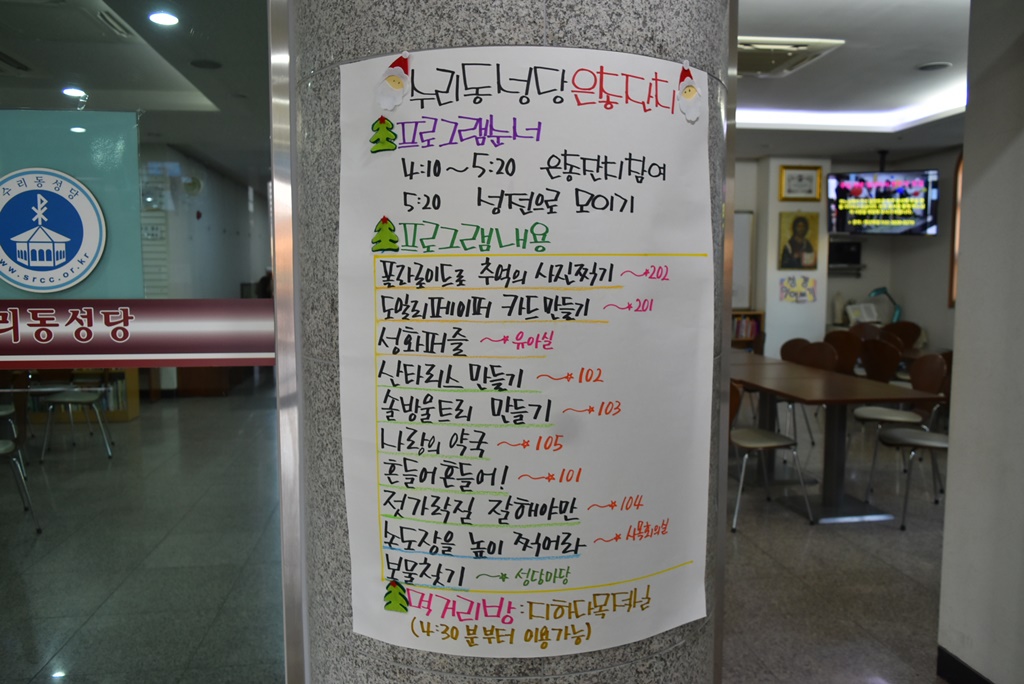 수리동성당 은총단지
프로그램순서
4:10~5:20 은총단지참여
5:20 성전으로 모이기
프로그램내용
폴라로이드로 추억의 사진찍기 → 202
도일리페이퍼 카드만들기 → 201
성화퍼즐 → 유아실
산타리스 만들기 → 102
솔방울트리 만들기 → 103
사랑의 약국 → 105
흔들어흔들어! → 101
젓가락질 잘해야만 → 104
눈도장을 높이 찍어라 → 사목회의실
보물찾기 → 성당마당
먹거리방 : 지하다목적실
(4:30분부터 이용가능)
수리동성당
www.srcc.or.kr
리동성당